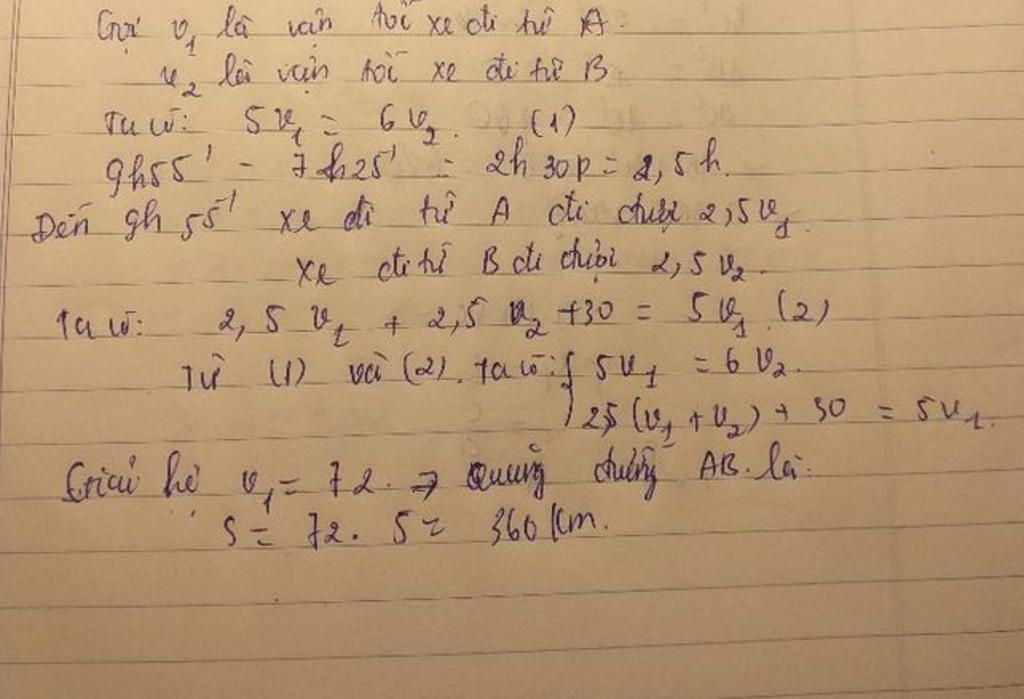 Gọi v₁ là vận tốc xe đi từ A.
v₂ là vận tốc xe đi từ B
Ta có: 5v₁ = 6v₂. (1)
9h55' - 7h25' = 2h 30p = 2,5h.
Đến 9h 55' xe đi từ A đi được 2,5v₁.
xe đi từ B đi được 2,5 v₂.
Ta có: 2,5 v₁ + 2,5 v₂ +30 = 5v₁ (2)
Từ (1) và (2). ta có: { 5v₁ = 6v₂.
2,5 (v₁ + v₂) + 30 = 5v₁.
Giải hệ v₁ = 72. ⇒ Quãng đường AB. là:
S = 72. 5 = 360 Km.